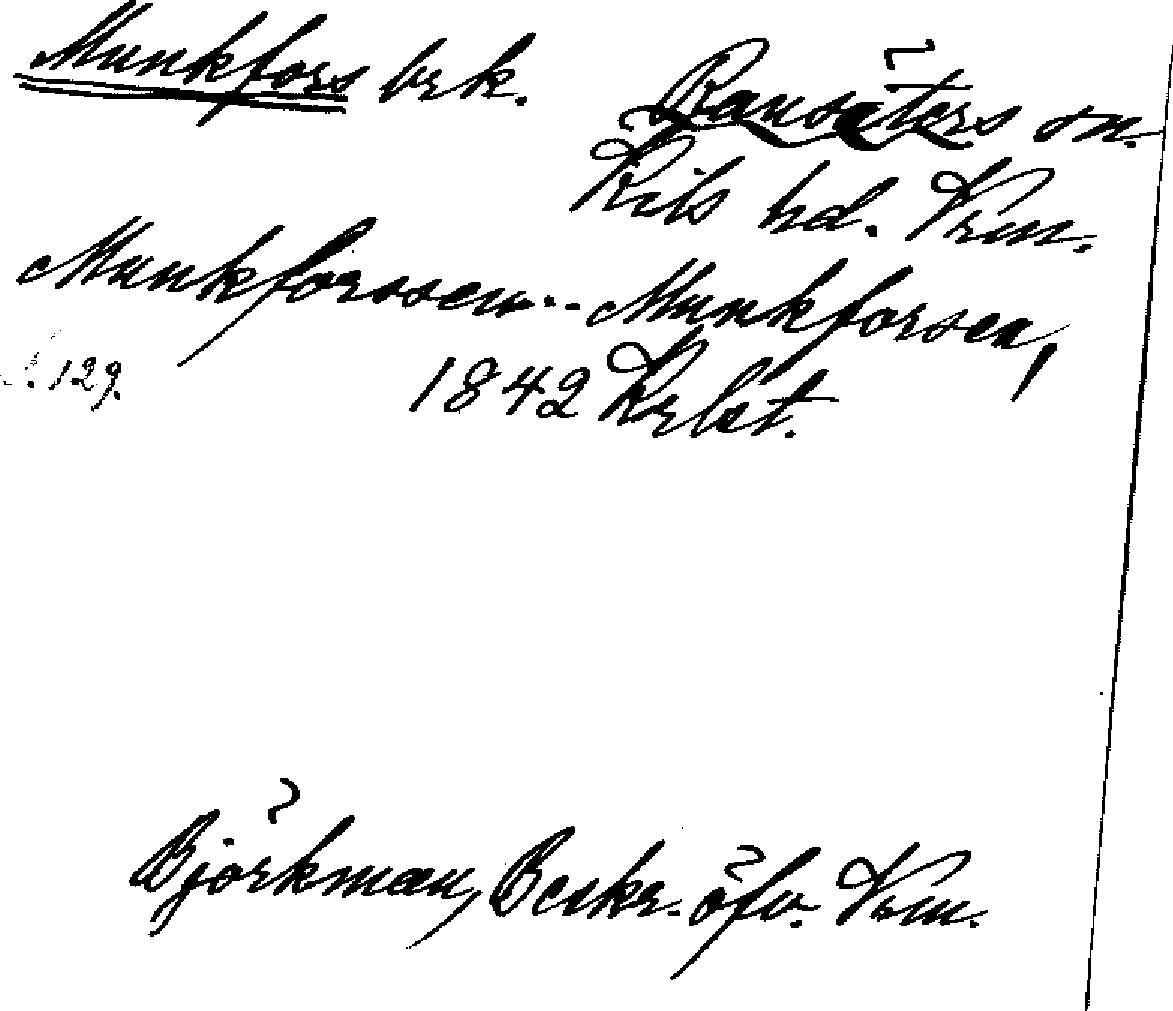 Munkfors brk. Ransäters sn.
Kils hd. Vrm.
Munkforssen -- Munkforsen,
s. 129. 1842 Krlät.
Björkman, Beskr. öfv. Vrm.